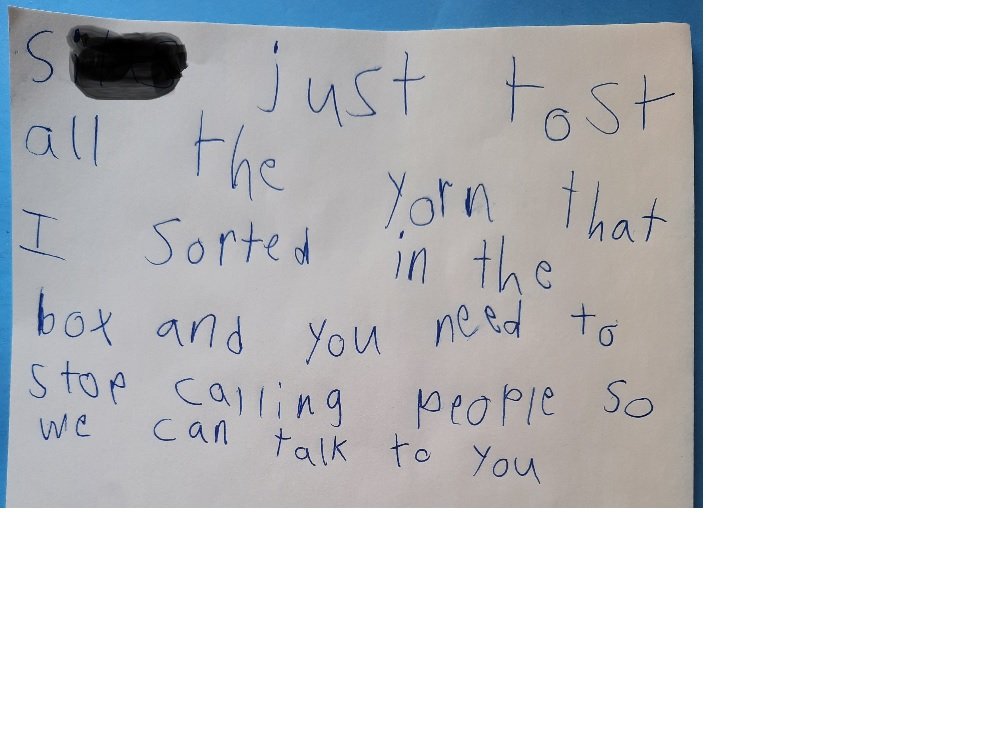 S just tost
all the yorn that
I sorted in the
box and you need to
stop calling people so
we can talk to you